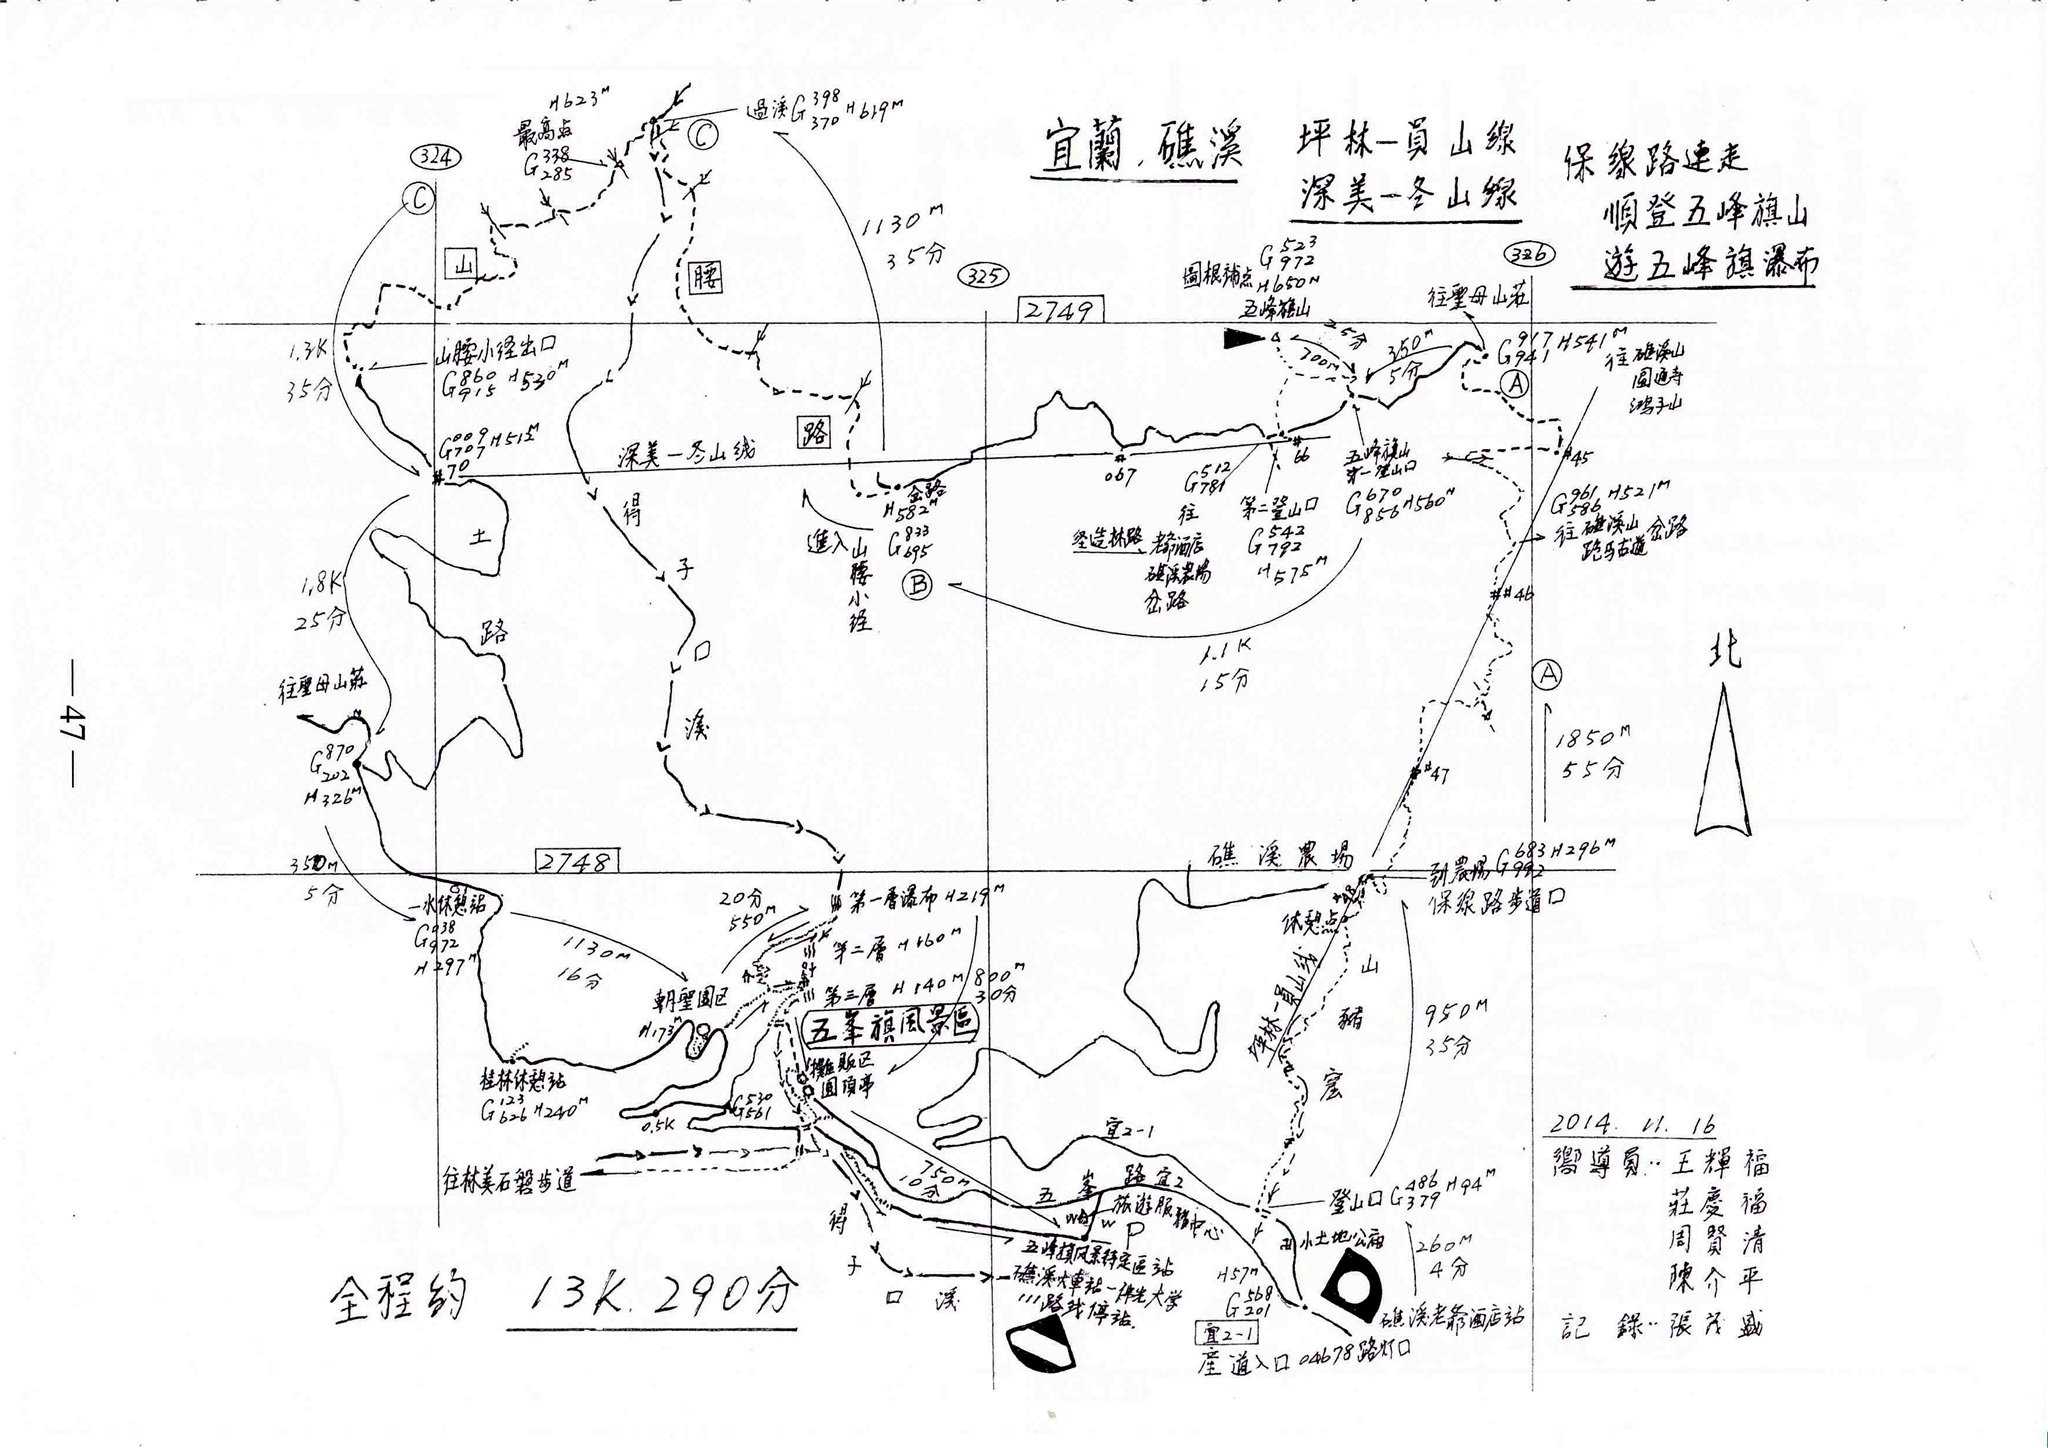 宜蘭.礁溪
坪林一員山線
深美一冬山線
保線路連走
順登五峰旗山
遊五峰旗瀑布
H623M
最高点
G338
285
C
過溪G398
370
H619M
324
C
山
腰
路
1130M
35分
325
2749
圖根補点
G523
972
H650M
五峰旗山
25分
700M
350M
5分
往聖母山莊
326
G917
941
H541M
A
往礁溪山
圓通寺
鴻子山
1.3K
35分
山腰小径出口
G860
915
H530M
G009
707
H515M
#70
深美一冬山线
#67
#66
#45
岔路
H582M
G833
695
B
進入山腰小径
G512
781
往
経造林路、老爺酒店
礁溪農場
岔路
第二登山口
G542
792
H575M
五峰旗山
第一登山口
G670
856
H560M
G961
586
H521M
往礁溪山
跑馬古道
岔路
#46
1.1K
15分
北
A
1850M
55分
#47
土
路
得
子
口
溪
1.8K
25分
往聖母山莊
G870
202
H326M
350M
5分
2748
一水休憩站
G038
972
H297M
1130M
16分
20分
550M
第一層瀑布H219M
第二層H160M
第三層H140M
800M
30分
五峯旗風景區
朝聖園区
H173M
攤販区
圓頂亭
桂林休憩站
G123
626
H240M
0.5K
G530
561
往林美石磐步道
750M
10分
礁溪農場
到農場G683
992
H296M
保線路步道口
#48
休憩点
坪林一員山線
山
豬
窟
950M
35分
宜2-1
五峯路宜2
旅遊服務中心
P
登山口G486
379
H94M
小土地公廟
260M
4分
五峰旗风景特定區站
礁溪火車站一佛光大学
路线停站.
H57M
G568
201
宜2-1
産道入口04678路灯口
礁溪老爺酒店站
得
子
口溪
全程約 13K.290分
2014.11.16
嚮導員:王輝福
莊慶福
周賢清
陳介平
記錄:張茂盛
—47—